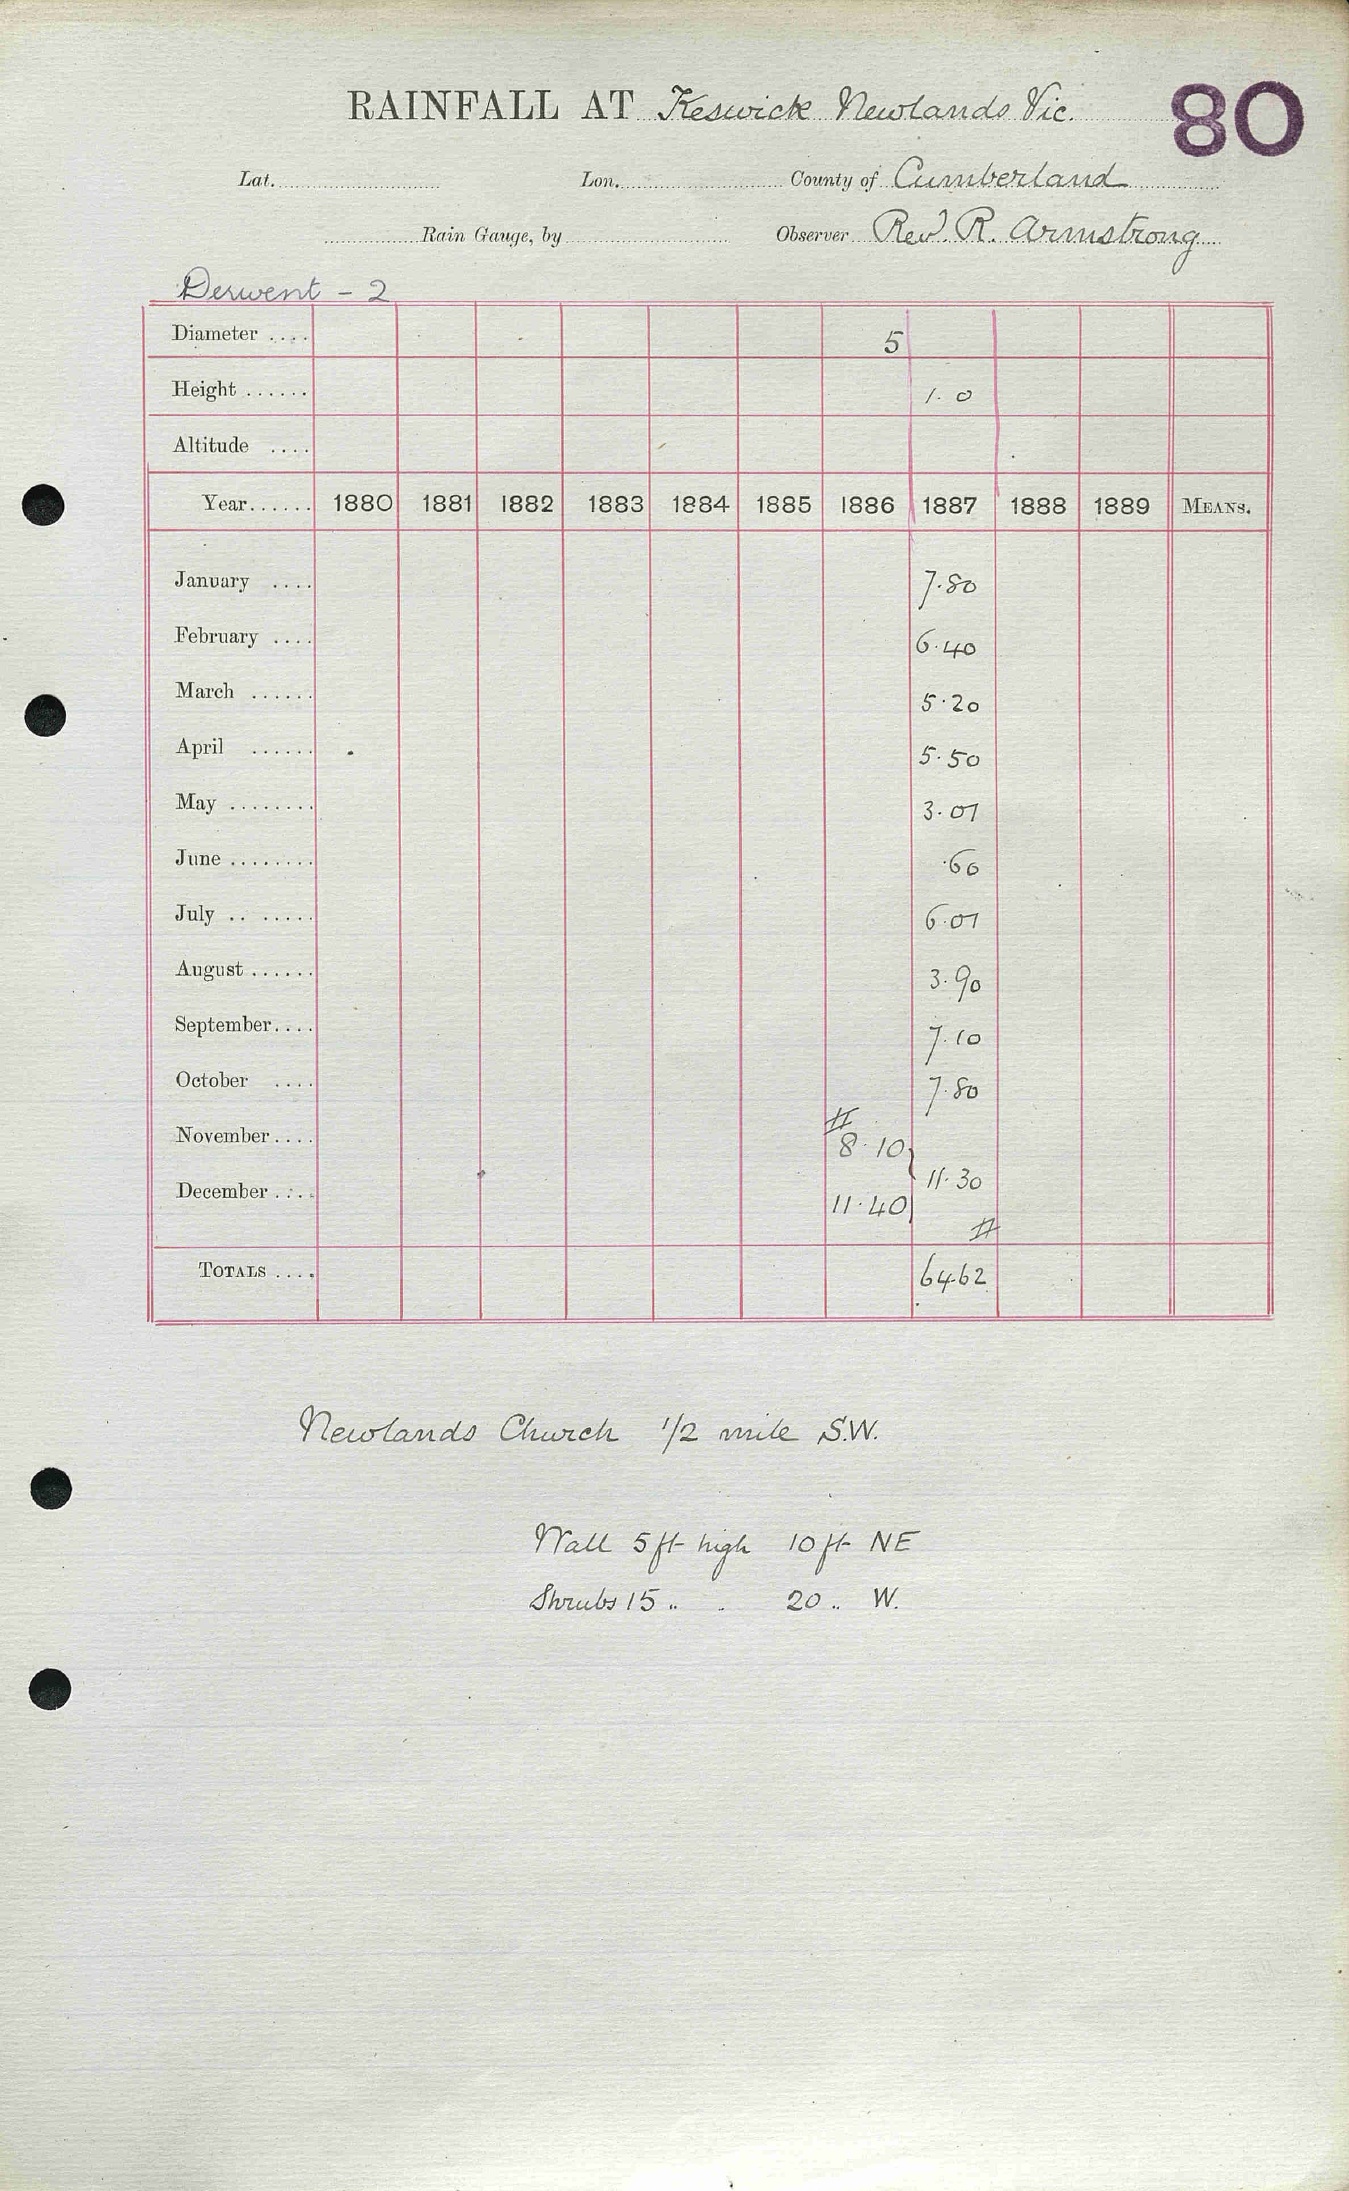 80
RAINFALL AT Keswick Newlands Vic.
Lat. Lon. County of Cumberland
Rain Gauge, by Observer Revd. R. Armstrong
Derwent - 2
Diameter .... 5
Height ...... 1. 0
Altitude ....
Year...... 1880 1881 1882 1883 1884 1885 1886 1887 1888 1889 MEANS.
January .... 7.80
February .... 6.40
March ...... 5.20
April ...... 5.50
May ........ 3.01
June ........ .60
July .. ..... 6.01
August ...... 3.90
September.... 7.10
October .... 7.80
#
November.... 8.10 }
11.30
December .... 11.40
#
TOTALS .... 64.62
Newlands Church 1/2 mile S.W.
Wall 5 ft high 10 ft NE
Shrubs 15 " " 20 " W.